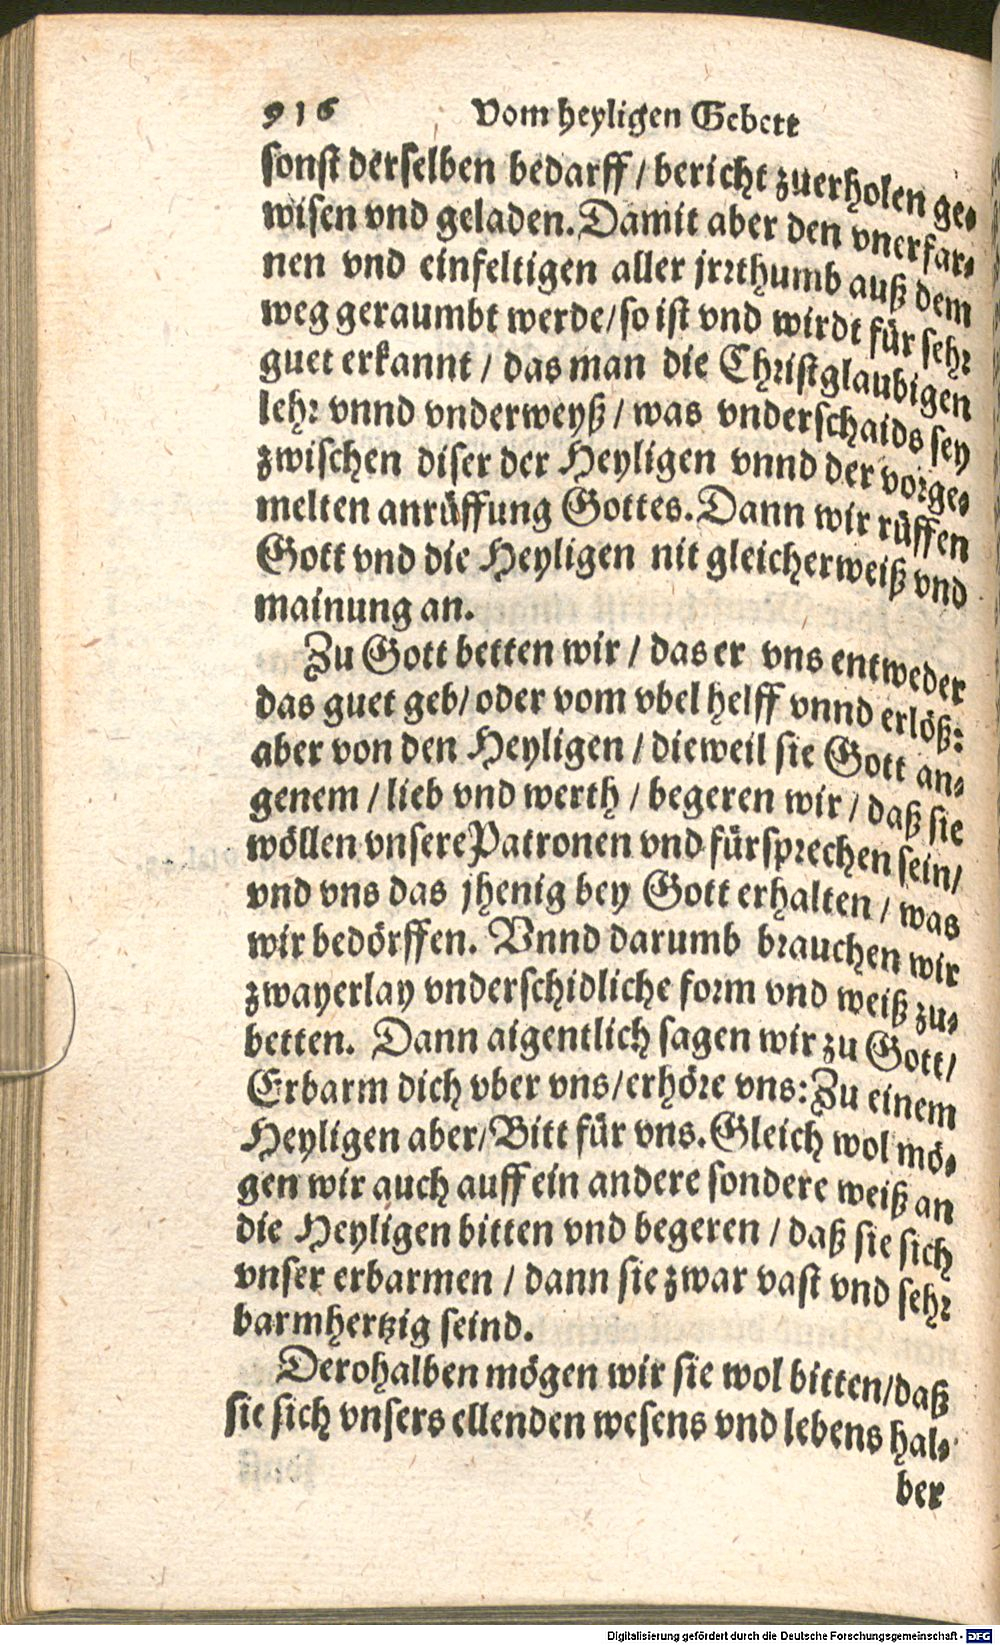 916 Vom heyligen Gebett
sonst derselben bedarff / bericht zuerholen ge-
wisen vnd geladen. Damit aber den vnerfar-
nen vnd einfeltigen aller jrrthumb auß dem
weg geraumbt werde/ so ist vnd wirdt für sehr
guet erkannt / das man die Christglaubigen
lehr vnnd vnderweyß / was vnderschaids sey
zwischen diser der Heyligen vnnd der vorge-
melten anrüffung Gottes. Dann wir rüffen
Gott vnd die Heyligen nit gleicherweiß vnd
mainung an.
Zu Gott betten wir / das er vns entweder
das guet geb/ oder vom vbel helff vnnd erlöß:
aber von den Heyligen / dieweil sie Gott an-
genem / lieb vnd werth / begeren wir / daß sie
wöllen vnsere Patronen vnd fürsprechen sein/
vnd vns das jhenig bey Gott erhalten / was
wir bedörffen. Vnnd darumb brauchen wir
zwayerlay vnderschidliche form vnd weiß zu-
betten. Dann aigentlich sagen wir zu Gott/
Erbarm dich vber vns/erhöre vns: Zu einem
Heyligen aber/Bitt für vns. Gleich wol mö-
gen wir auch auff ein andere sondere weiß an
die Heyligen bitten vnd begeren / daß sie sich
vnser erbarmen / dann sie zwar vast vnd sehr
barmhertzig seind.
Derohalben mögen wir sie wol bitten/daß
sie sich vnsers ellenden wesens vnd lebens hal-
ber
Digitalisierung gefördert durch die Deutsche Forschungsgemeinschaft - DFG